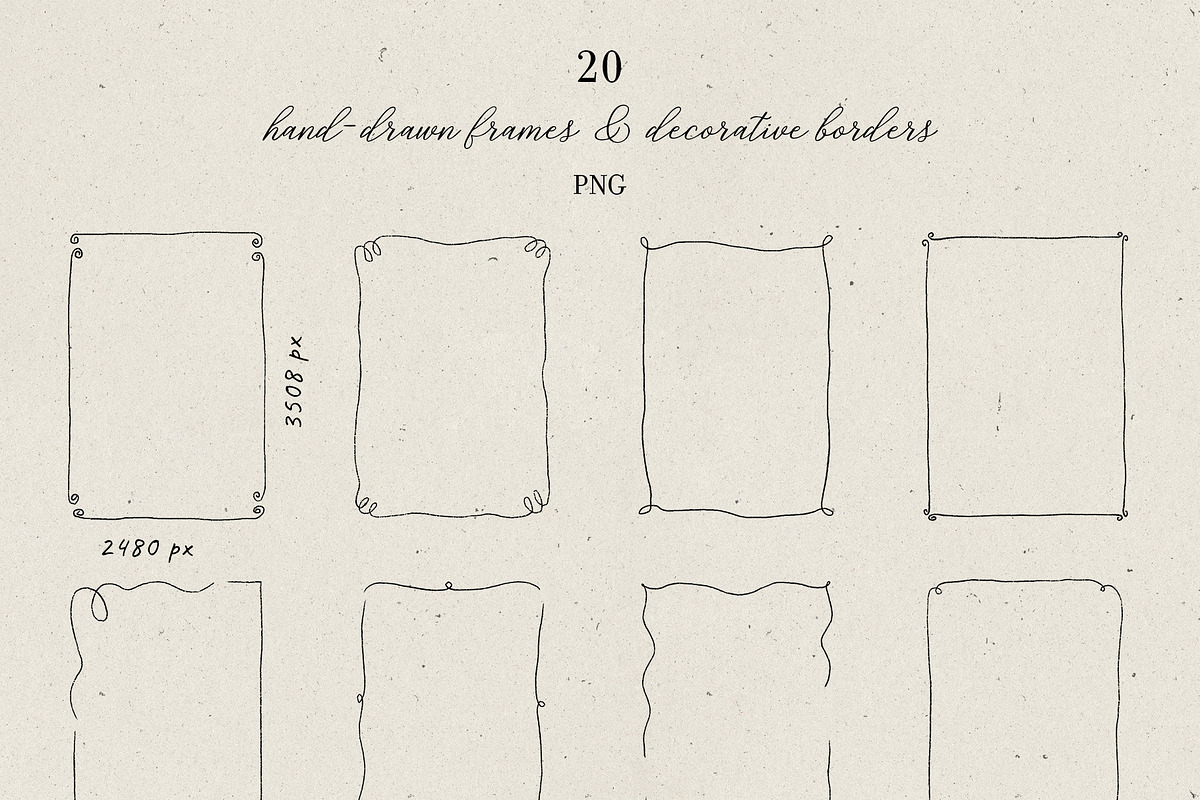 20
hand-drawn frames & decorative borders
PNG
3508 px
2480 px